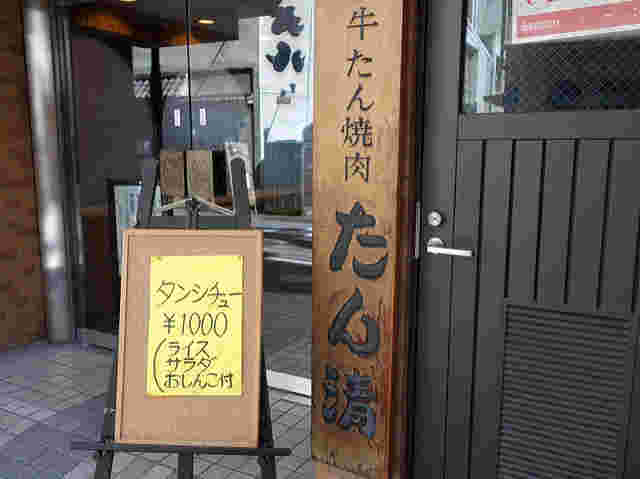 牛たん焼肉
たん清
タンシチュー
¥1000
(ライス
サラダ
おしんこ付